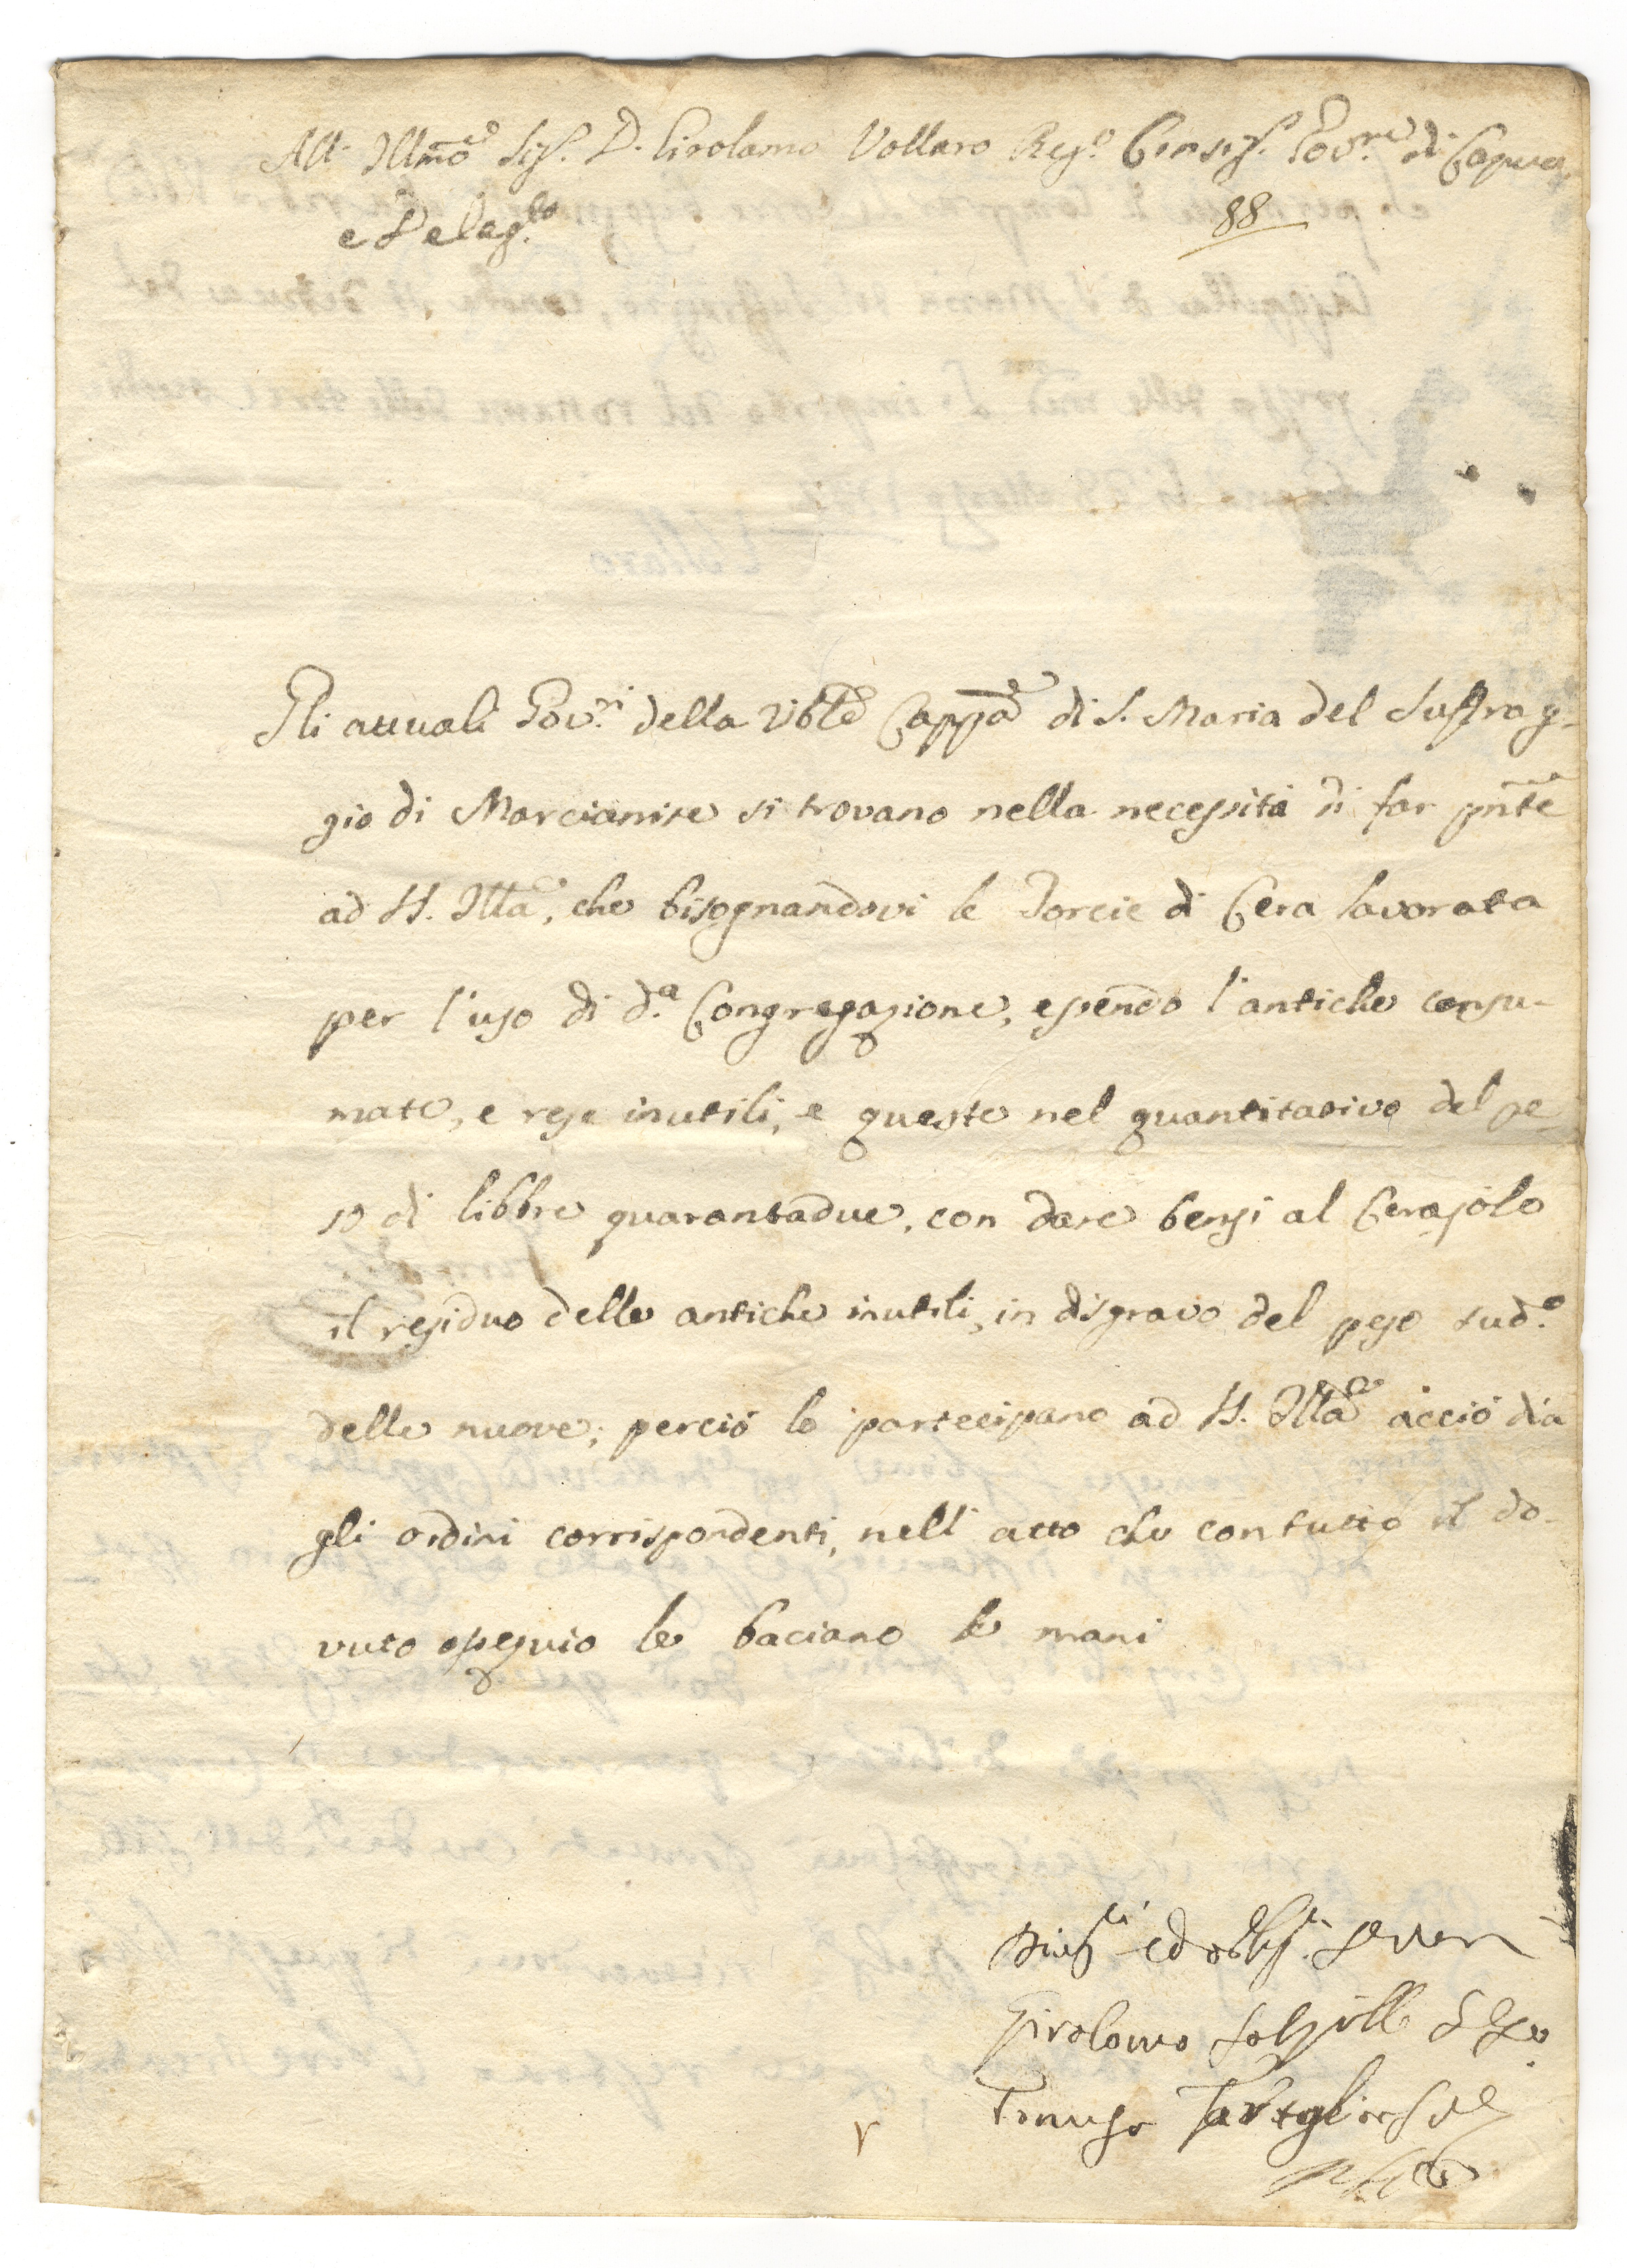 All' Illmo Sig.r D. Girolamo Vollaro Reg.o Consig.r Gov.re di Capua,
e Deleg.to
88
Gli attuali Gov.ri della Vble Cappa di S. Maria del Suffrag-
gio di Marcianise si trovano nella necessità di far pnte
ad V.S. Illma, che bisognandovi le Torcie di Cera lavorata
per l'uso di d.a Congregazione, essendo l'antiche consu-
mate, e rese inutili, e queste nel quantitativo del pe-
so di libbre quarantadue, con dare bensi al Cerajolo
il residuo delle antiche inutili, in disgravo del peso sud.o
delle nuove; perciò lo partecipano ad V.S. Illma acciò dia
gli ordini corrispondenti, nell' atto che con tutto il do-
vuto ossequio le baciano le mani
ed obblig.
Girolamo
Tartaglione